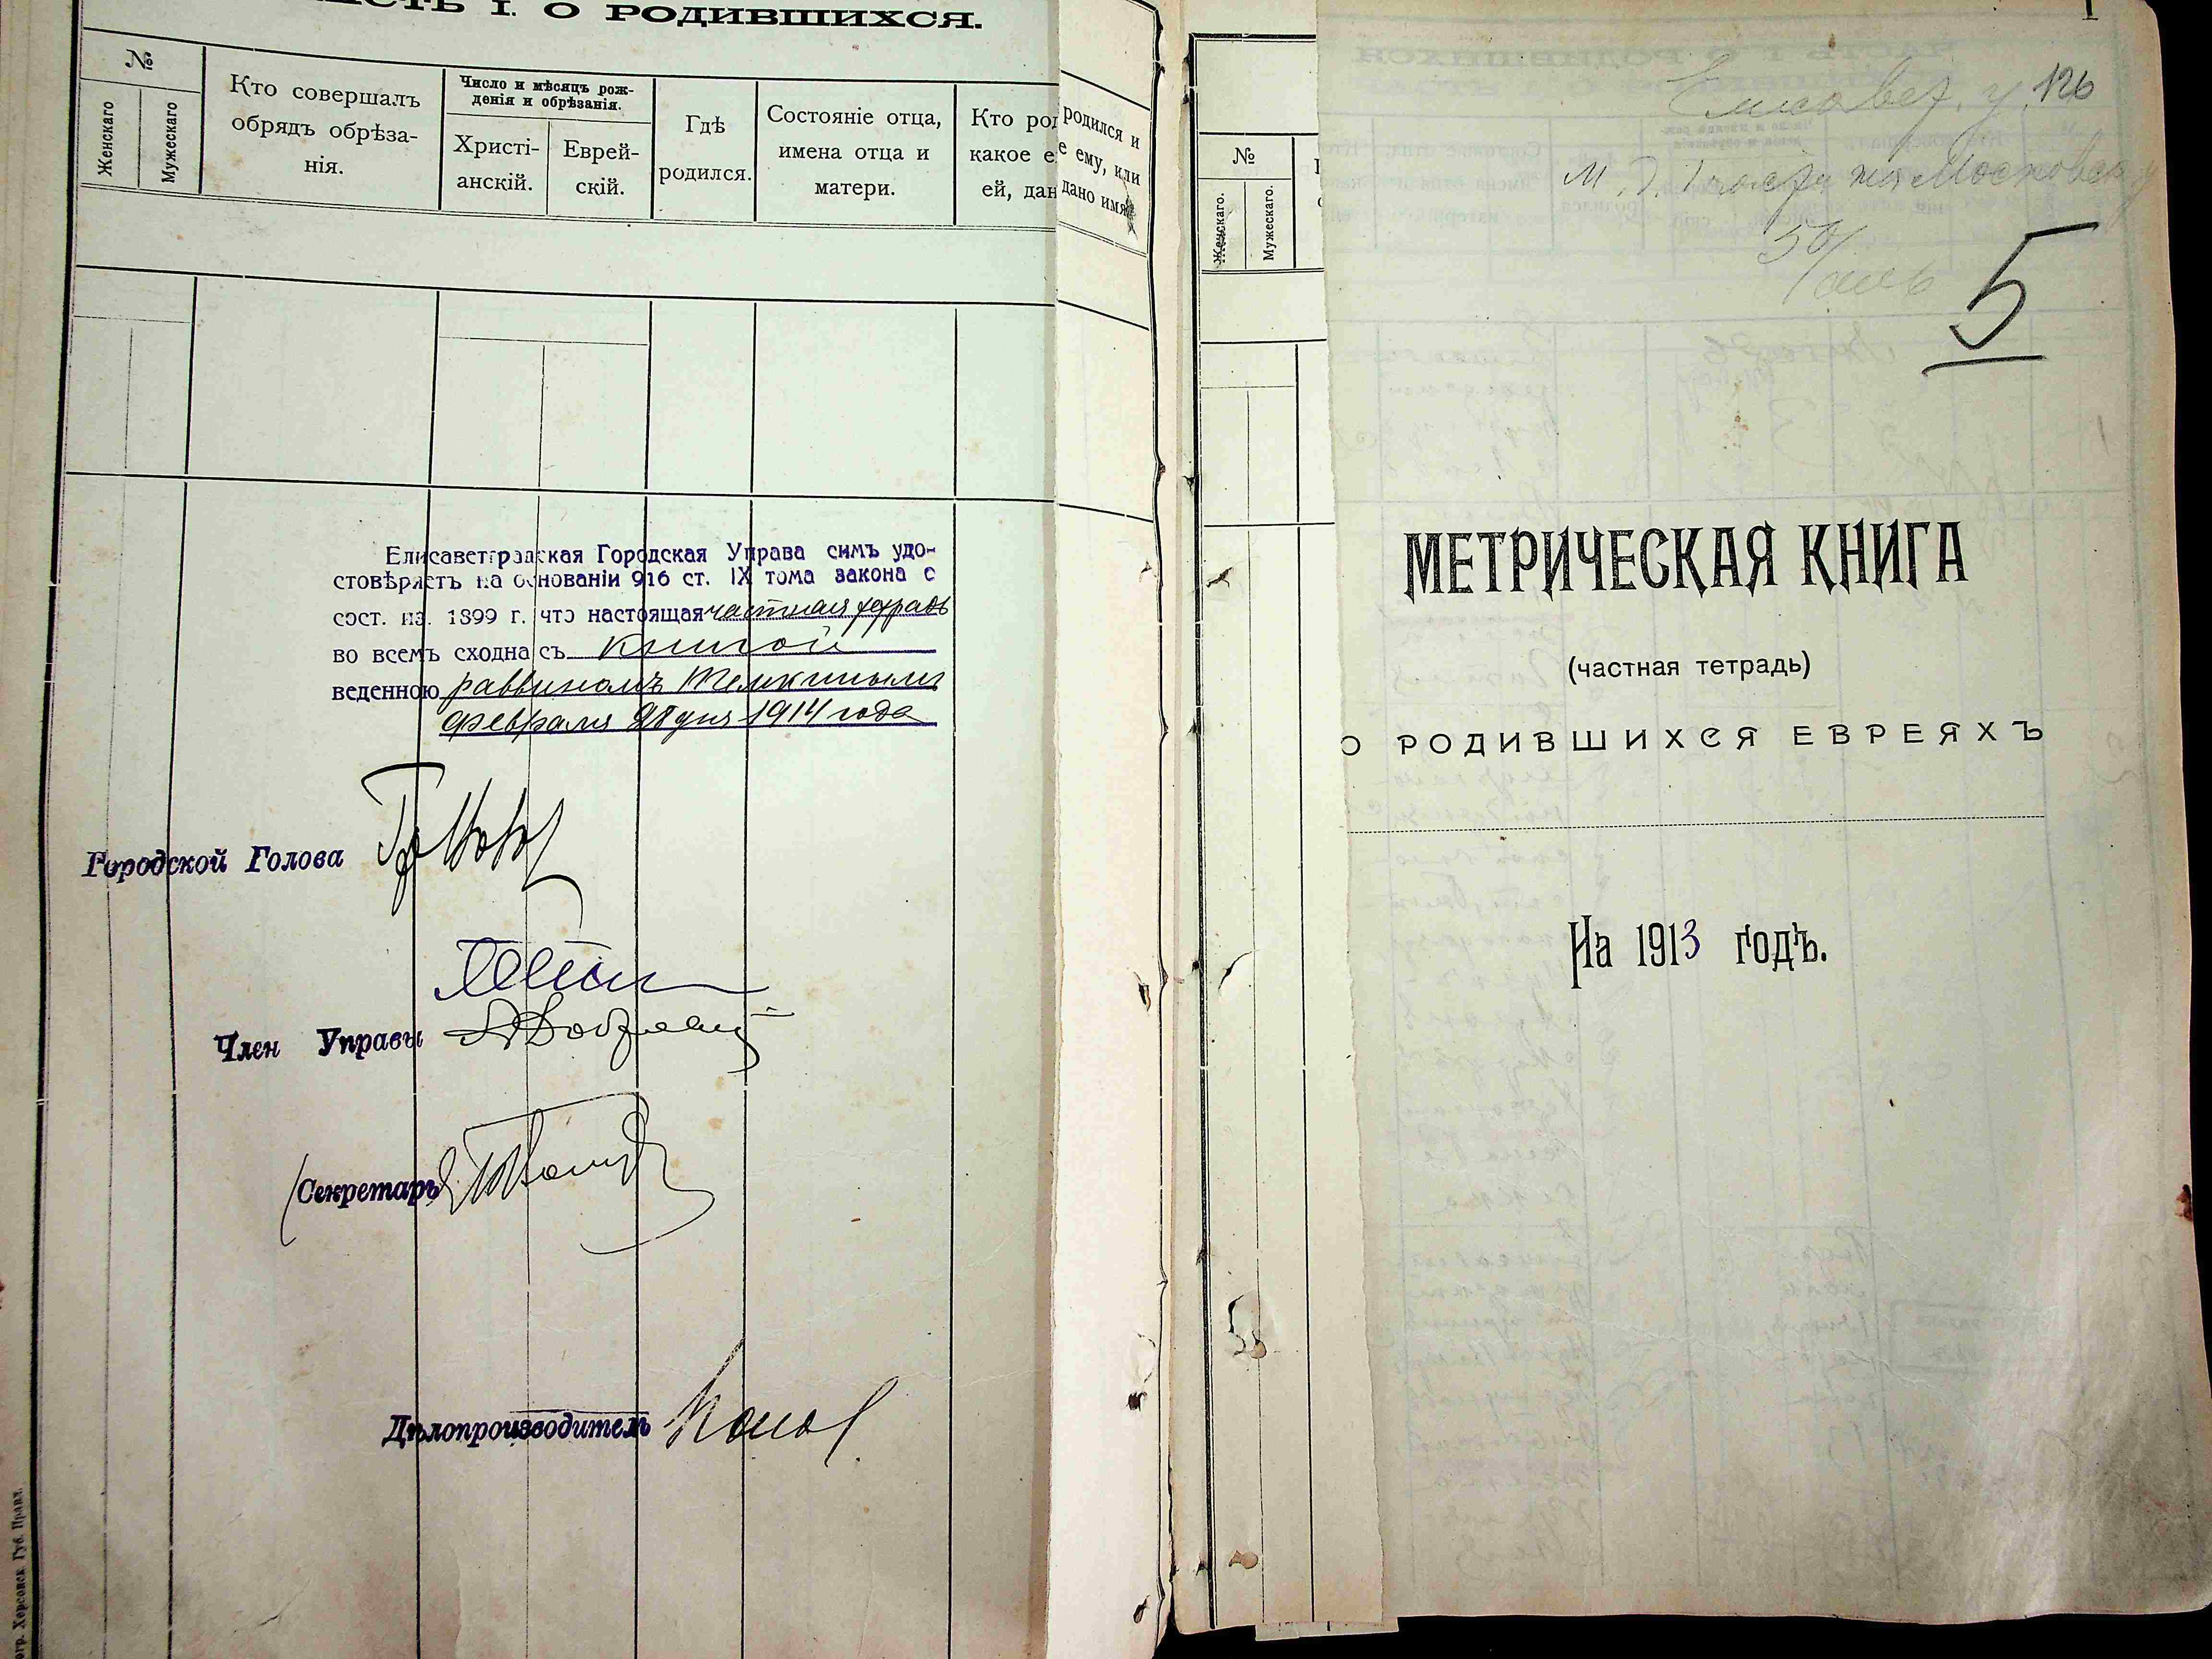 ЧАСТЬ I. О РОДИВШИХСЯ.
№
Женскаго
Мужескаго
Кто совершалъ
обрядъ обрѣза-
нія.
Число и мѣсяцъ рож-
денія и обрѣзанія.
Христі-
анскій.
Еврей-
скій.
Гдѣ
родился.
Состояніе отца,
имена отца и
матери.
Кто род
какое е
ей, дан
родился и
е ему, или
дано имя
Елисаветградская Городская Управа симъ удо-
стовѣряетъ на основаніи 916 ст. IX тома закона о
сост. из. 1899 г. что настоящая частная тетрадь
во всемъ сходна съ книгой
веденною раввиномъ Темкинымъ
Февраля 28 дня 1914 года
Городской Голова
Член Управы
Секретарь
Дѣлопроизводитель
Херсонск. Губ. Правл.
№
Женскаго.
Мужескаго.
1
Елисавет. у. 126
5
МЕТРИЧЕСКАЯ КНИГА
(частная тетрадь)
О РОДИВШИХСЯ ЕВРЕЯХЪ
На 1913 годъ.